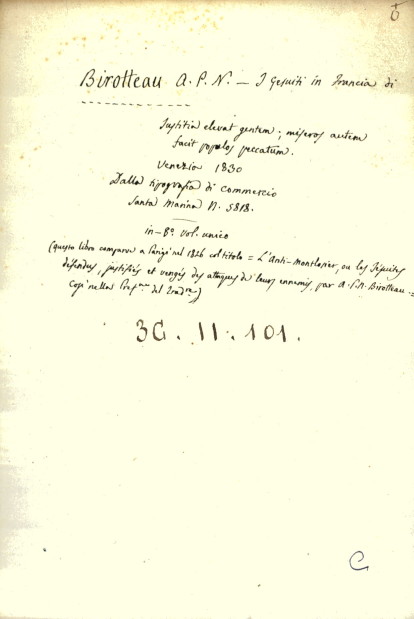 6
Birotteau A. P. N. — I Gesuiti in Francia di
Justitia elevat gentem; miseros autem
facit populos peccatum.
Venezia 1830
Dalla tipografia di commercio
Santa Marina N. 5818.
in-8º. vol. unico
(questo libro comparve a Parigi nel 1826 col titolo = L'Anti-Montlosier, ou les Jésuites
défendus, justifiés et vengés des attaques de leurs ennemis, par A. P. N. Birotteau =
Così nella Pref.ne del Trad.re)
3G. 11. 101.
C